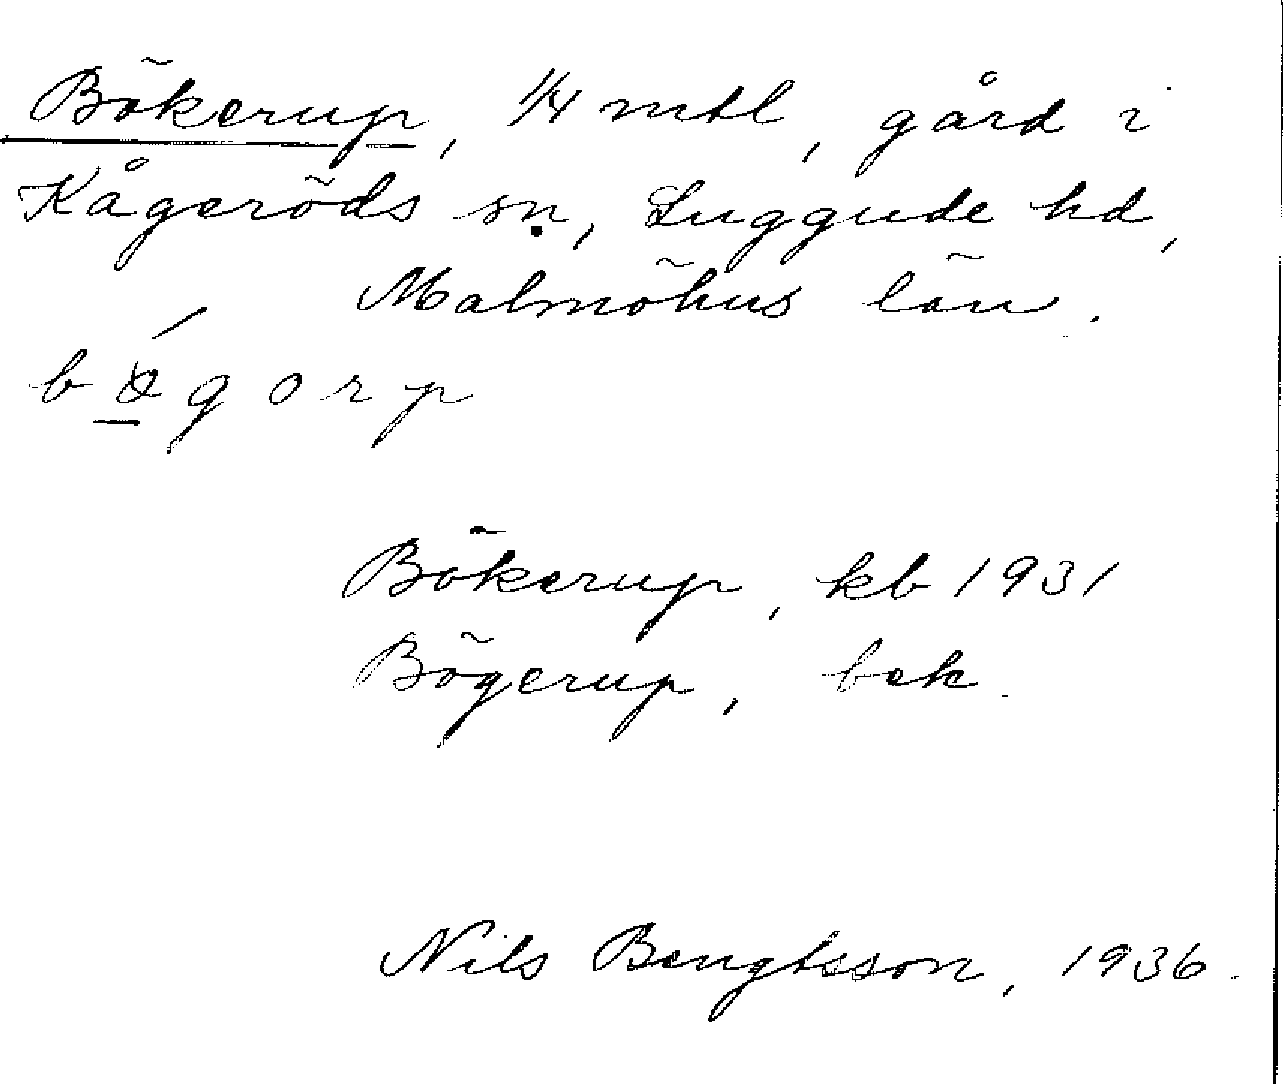 Bökerup, 1/4 mtl, gård i
Kågeröds sn, Luggude hd,
Malmöhus län.
b ǿ g o r p
Bökerup, kb 1931
Bögerup, bek.
Nils Bengtsson, 1936.